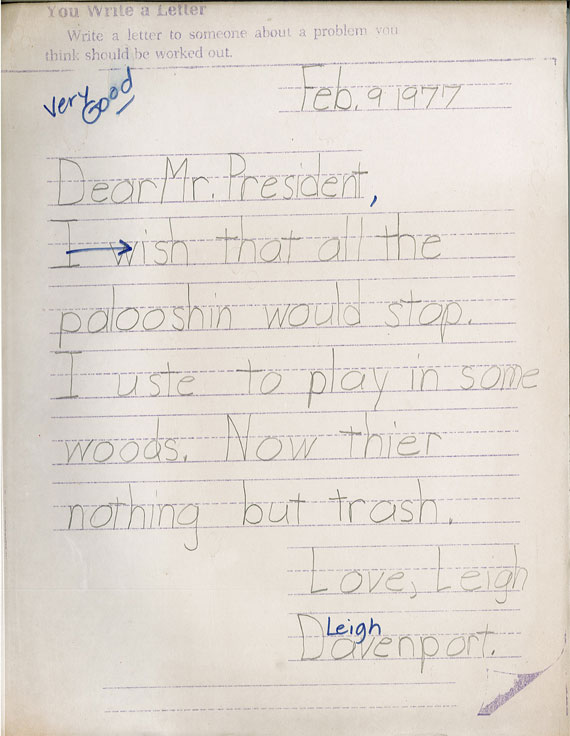 You Write a Letter
Write a letter to someone about a problem you
think should be worked out.
very Good
Feb. 9 1977
Dear Mr. President,
I wish that all the
palooshin would stop.
I uste to play in some
woods. Now thier
nothing but trash.
Love, Leigh
Leigh
Davenport.